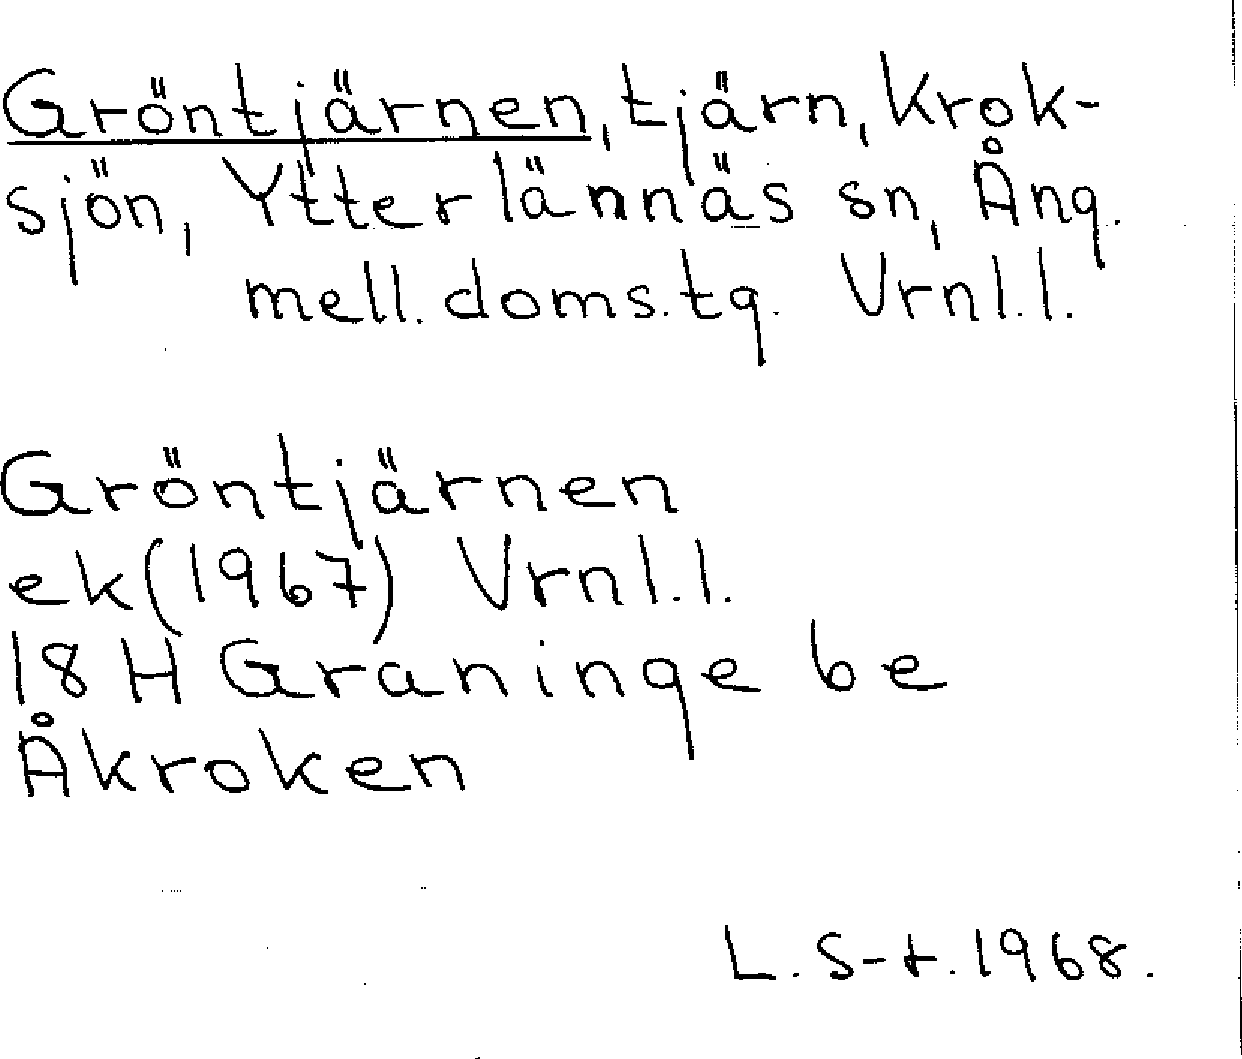 Gröntjärnen, tjärn, Krok-
sjön, Ytterlännäs sn, Ång.
mell. doms.tg. Vrnl.l.
Gröntjärnen
ek (1967) Vrnl.l.
18 H Graninge be
Åkroken
L. S-t. 1968.